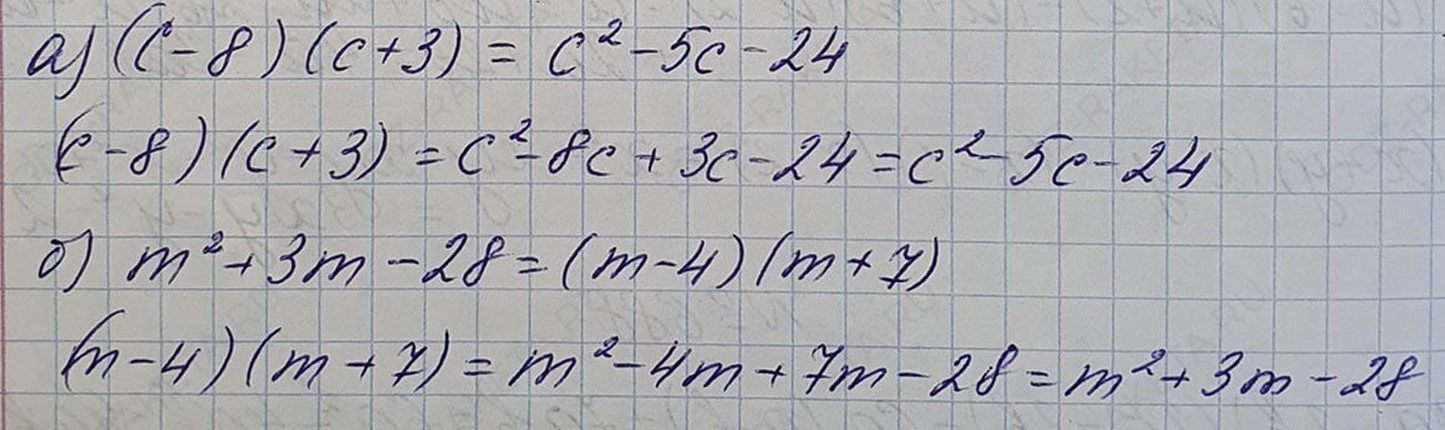 а) (c-8)(c+3) = c²-5c-24
(c-8)(c+3) = c²-8c+3c-24 = c²-5c-24
б) m²+3m-28 = (m-4)(m+7)
(m-4)(m+7) = m²-4m+7m-28 = m²+3m-28